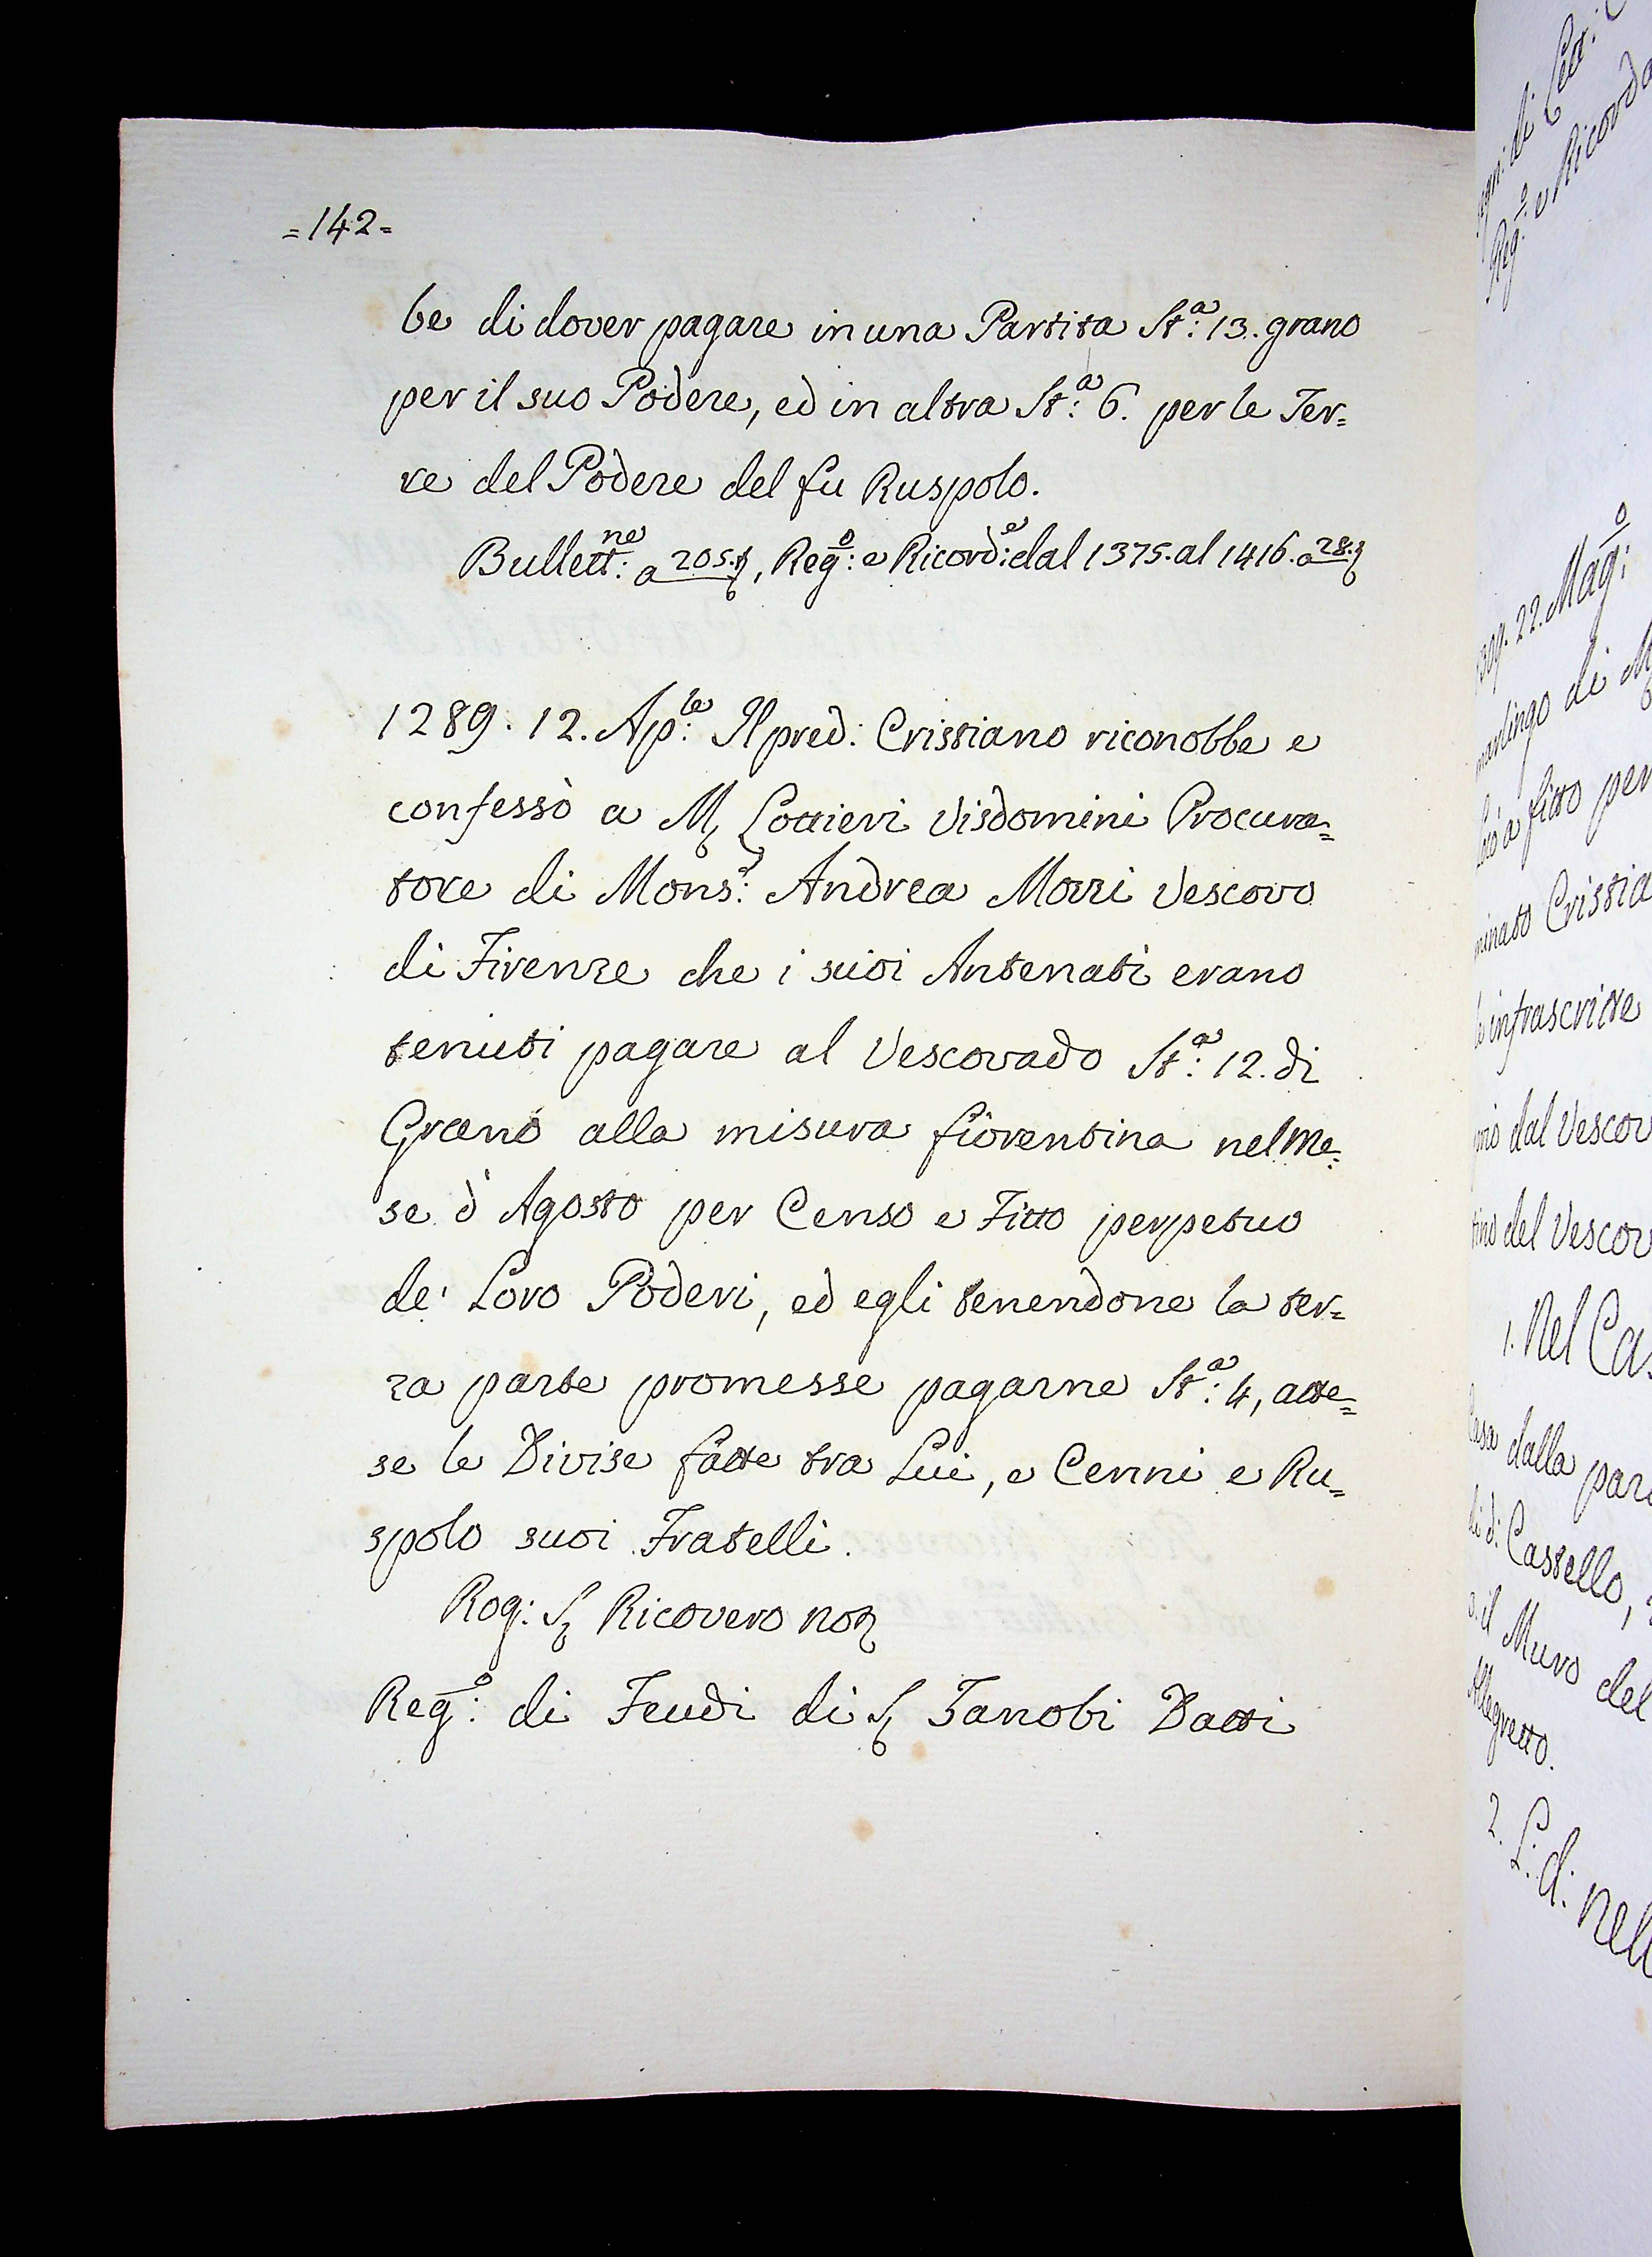 =142=
be di dover pagare in una Partita St.ª: 13. grano
per il suo Podere, ed in altra St.ª: 6. per le Ter=
re del Podere del fu Ruspolo.
Bullett:ne a 205., Reg:o e Ricord:e dal 1375. al 1416. a 28.
1289. 12. Ap:le Il pred: Cristiano riconobbe e
confessò a M. Lottieri Visdomini Procura=
tore di Mons:r Andrea Mozzi Vescovo
di Firenze che i suoi Antenati erano
tenuti pagare al Vescovado St:ª 12. di
Grano alla misura fiorentina nel Me=
se d'Agosto per Censo e Fitto perpetuo
de' Loro Poderi, ed egli tenendone la ter=
za parte promesse pagarne St:ª 4, atte=
se le Divise fatte tra Lui, e Cenni e Ru=
spolo suoi Fratelli.
Rog: S. Ricovero Not.
Reg:o di Feudi di S. Zanobi Datti
e Ricord
309. 22. Mag:o
di
a fitto per
Cristia
infrascritte
dal Vescov
del Vescov
1. Nel Cas
Casa dalla par
Castello,
il Muro del
Allegretto.
2. L: d: nell